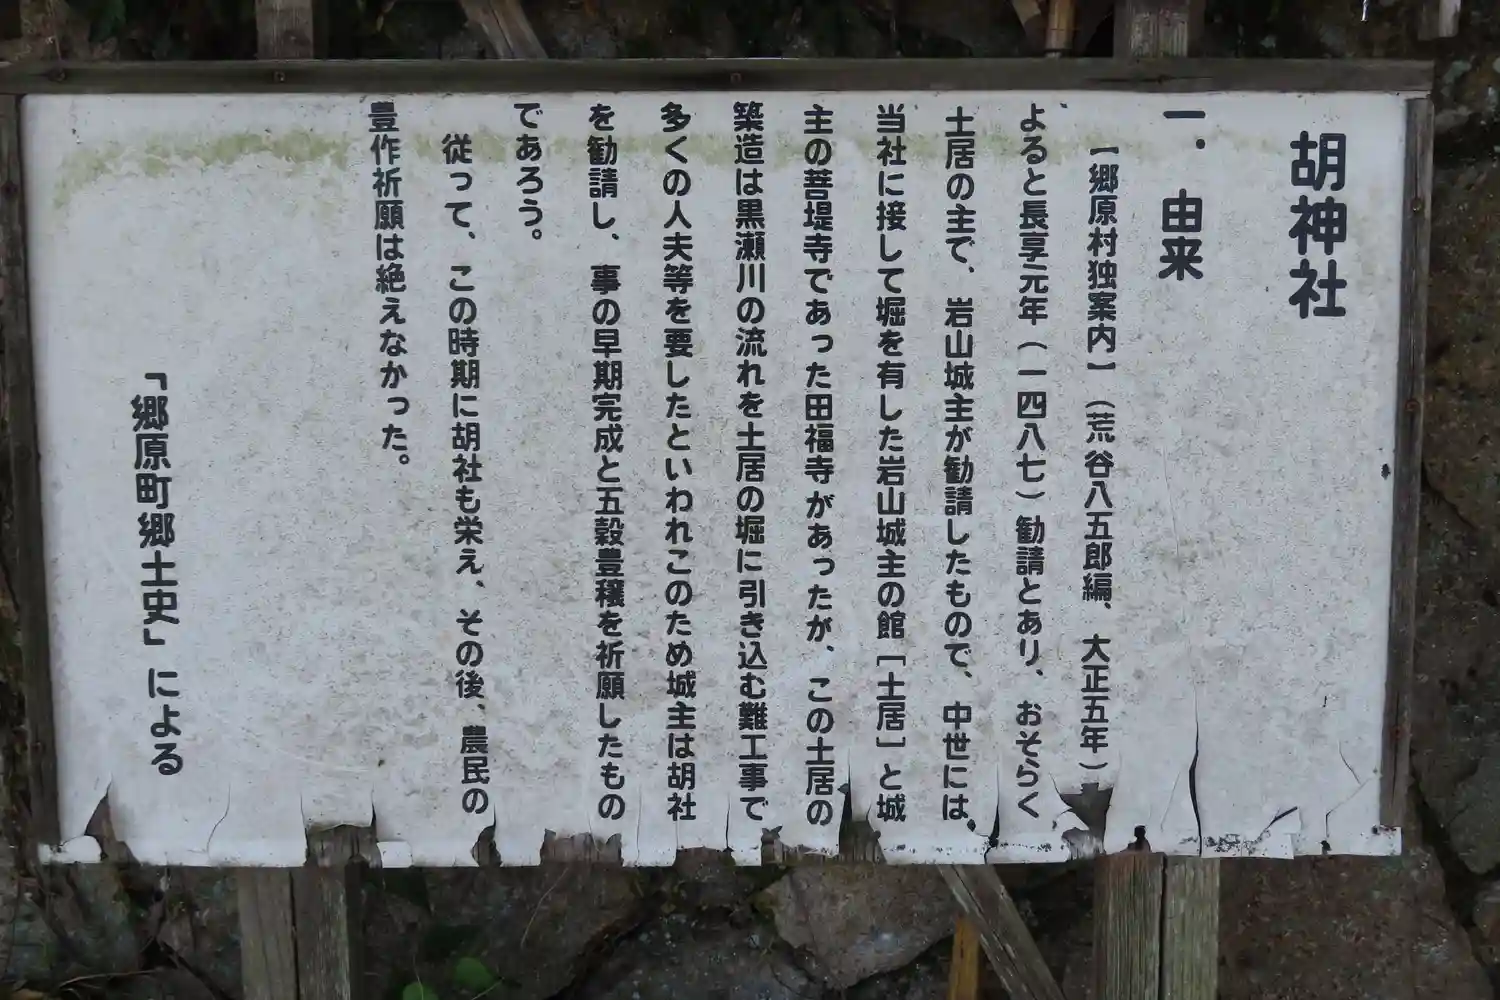 胡神社
一．由来
【郷原村独案内】（荒谷八五郎編、大正五年）
よると長享元年（一四八七）勧請とあり、おそらく
土居の主で、岩山城主が勧請したもので、中世には、
当社に接して堀を有した岩山城主の館［土居］と城
主の菩堤寺であった田福寺があったが、この土居の
築造は黒瀬川の流れを土居の堀に引き込む難工事で
多くの人夫等を要したといわれこのため城主は胡社
を勧請し、事の早期完成と五穀豊穣を祈願したもの
であろう。
従って、この時期に胡社も栄え、その後、農民の
豊作祈願は絶えなかった。
「郷原町郷土史」による